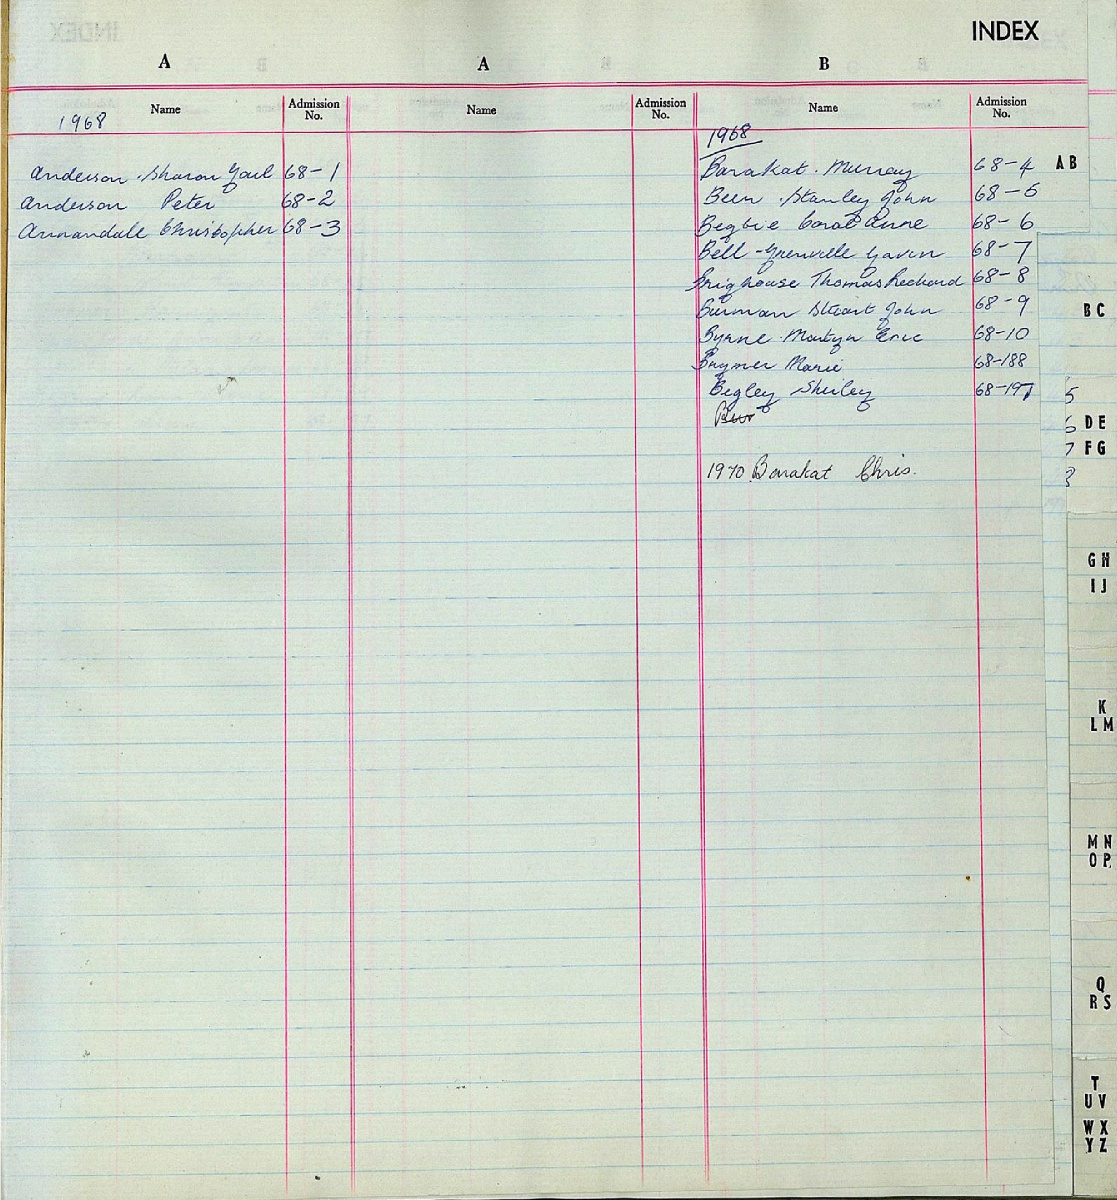 INDEX
A
A
B
Name
Admission No.
Name
Admission No.
Name
Admission No.
1968
Anderson Sharon Gail 68-1
Anderson Peter 68-2
Annandale Christopher 68-3
1968
Barakat Murray 68-4
Been Stanley John 68-5
Begbie Carol Anne 68-6
Bell-Grenville Gavin 68-7
Brighouse Thomas Richard 68-8
Burman Stuart John 68-9
Byrne Martyn Eric 68-10
Baymer Marie 68-188
Begley Shirley 68-197
1970 Barakat Chris.
A B
B C
5
6 D E
7 F G
G H
I J
K
L M
M N
O P
Q
R S
T
U V
W X
Y Z